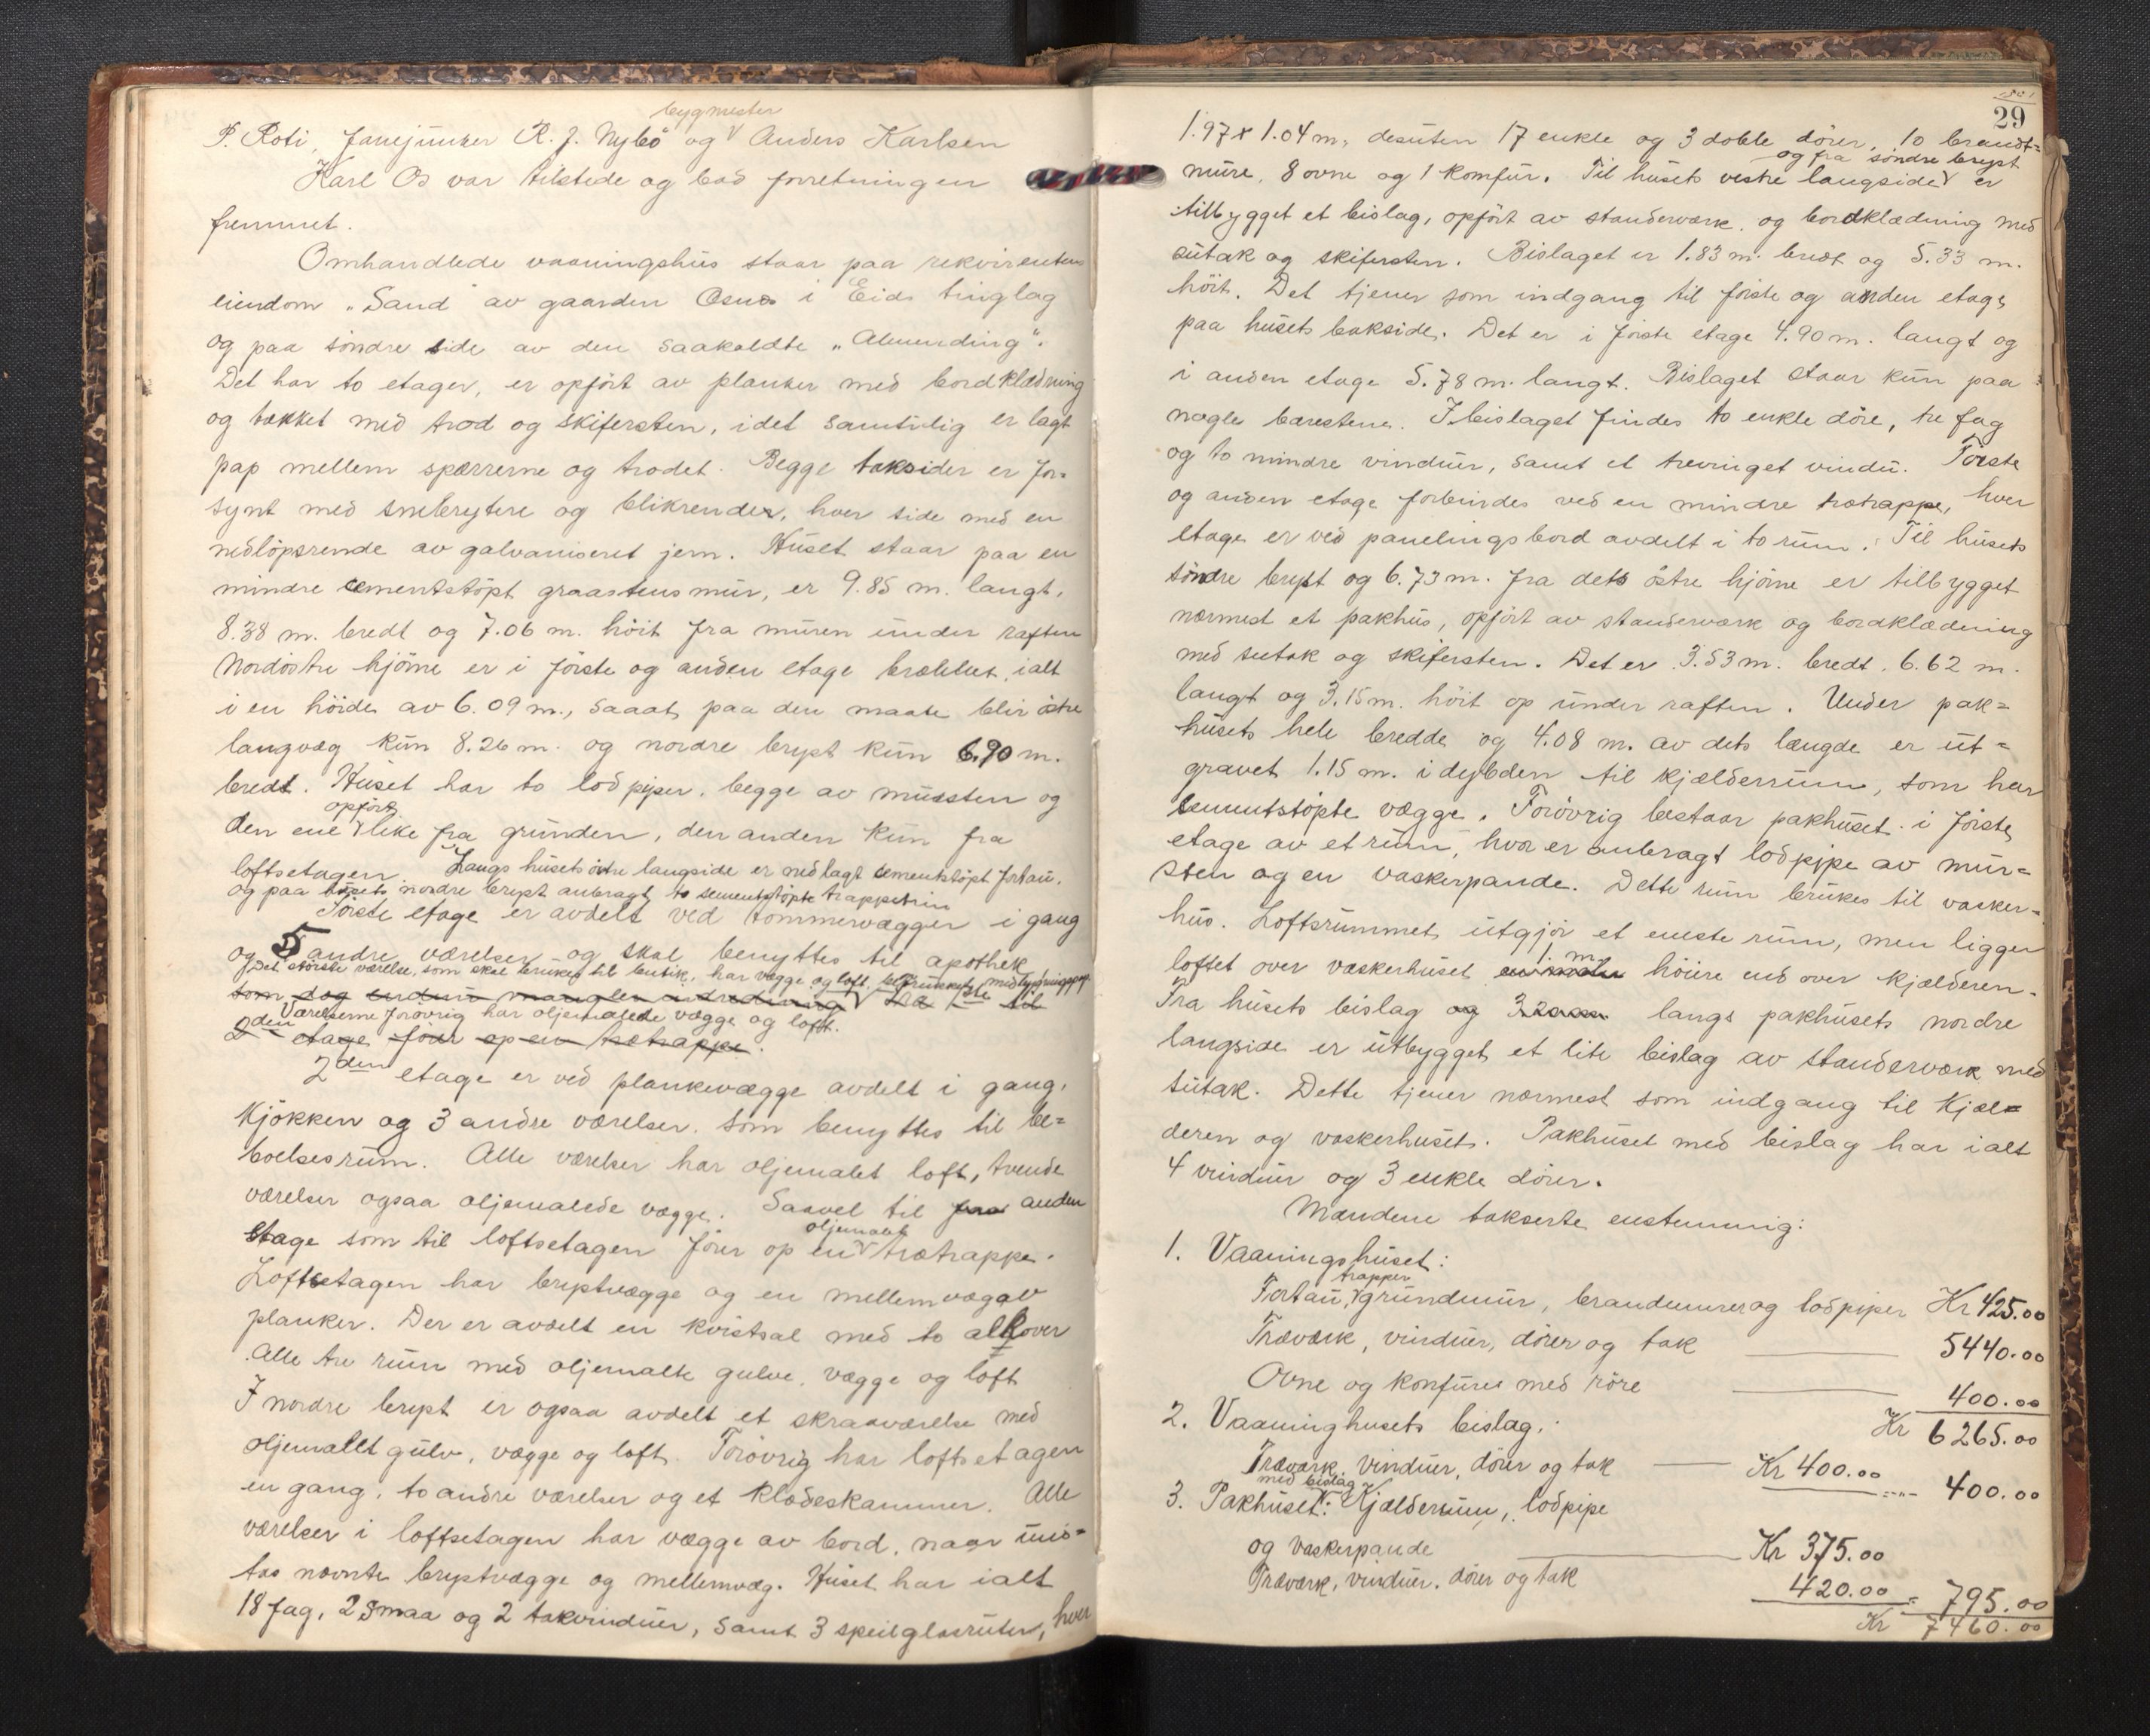 bygmester
P. Roti, Jarlejunker R. J. Nybö og Anders Karlsen
Karl Os var tilstede og bad forretningen
fremmet.
Omhandlede vaaningshus staar paa rekvirentens
eiendom „Sand" av gaarden Osnes i Eids tinglag
og paa söndre side av den saakaldte „Almending".
Det har to etager, er opfört av planker med bordklædning
og tækket med trod og skifersten, idet samtidig er lagt
pap mellem spærrerne og trodet. Begge taksider er for-
synt med snebrytere og blikrender, hver side med en
nedlöpsrende av galvaniseret jern. Huset staar paa en
mindre cementstöpt graastensmur, er 9.85 m. langt,
8.38 m. bredt og 7.06 m. höit fra muren under raften
Nordöstre hjörne er i förste og anden etage brækket, ialt
i en höide av 6.09 m., saaat paa den maate blir östre
langvæg kun 8.26 m. og nordre bryst kun 6.90 m.
bredt. Huset har to lodpiper, begge av mursten og
opfört
den ene like fra grunden, den anden kun fra
loftsetagen. Langs husets östre langside er nedlagt cementstöpt fortau,
og paa husets nordre bryst anbragt to sementstöpte trappetrin
Förste etage er avdelt ved tömmervægger i gang
og 5 andre værelser og skal benyttes til apothek
Det störste værelse, som skal brukes til butik, har vægge og loft
som dog endnu mangler indredning Fra 1ste til
Værelserne forövrig har oljemalede vægge og loft.
2den etage förer op en trætrappe.
2den etage er ved plankevægge avdelt i gang,
Kjökken og 3 andre værelser, som benyttes til be-
boelsesrum. Alle værelser har oljemalet loft, tvende
værelser ogsaa oljemalede vægge. Saavel til fra anden
oljemalet
etage som til loftsetagen förer op en trætrappe.
Loftsetagen har brystvægge og en mellemvæg av
planker. Der er avdelt en kvistsal med to alkover
Alle tre rum med oljemalte gulve, vægge og loft
I nordre bryst er ogsaa avdelt et skraaværelse med
oljemallt gulv, vægge og loft. Forövrig har loftsetagen
en gang, to andre værelser og et klædeskammer. Alle
værelser i loftsetagen har vægge av bord, naar und-
tas nævnte brystvægge og mellemvæg. Huset har ialt
18 fag, 2 smaa og 2 takvinduer, samt 3 speilglasruter, hver
29
1.97 x 1.04 m, desuten 17 enkle og 3 doble dörer, 10 brandt-
og fra söndre bryst
mure, 8 ovne og 1 komfur. Til husets vestre langside er
tilbygget et bislag, opfört av standerværk og bordklædning med
sutak og skifersten. Bislaget er 1.83 m. bredt og 5.33 m.
höit. Det tjener som indgang til förste og anden etage
paa husets bakside. Det er i förste etage 4.90 m. langt og
i anden etage 5.78 m. langt. Bislaget staar kun paa
nogle bærestene. I bislaget findes to enkle döre, tre fag
og to mindre vinduer, samt et trevinget vindu. Förste
og anden etage forbindes ved en mindre trætrappe, hver
etage er ved panelingsbord avdelt i to rum. Til husets
söndre bryst og 6.73 m. fra dets östre hjörne er tilbygget
nærmest et pakhus, opfört av standerværk og bordklædning
med sutak og skifersten. Det er 3.53 m. bredt, 6.62 m.
langt og 3.15 m. höit op under raften. Under pak-
husets hele bredde og 4.08 m. av dets længde er ut-
gravet 1.15 m. i dybden til kjælderrum, som har
sementstöpte vægge. Forövrig bestaar pakhuset i förste
etage av et rum, hvor er anbragt lodpipe av mur-
sten og en vaskerpande. Dette rum brukes til vasker-
hus. Loftsrummet utgjör et eneste rum, men ligger
1. m.
loftet over vaskerhuset höiere end over kjælderen.
Fra husets bislag og langs pakhusets nordre
langside er utbygget et lite bislag av standerværk med
sutak. Dette tjener nærmest som indgang til kjæl-
deren og vaskerhuset. Pakhuset med bislag har ialt
4 vinduer og 3 enkle dörer.
Mændene takserte enstemmig:
1. Vaaningshuset:
trapper
Fortau, grundmur, brandmurer og lodpiper Kr 425.00
Træværk, vinduer, dörer og tak 5440.00
Ovne og konfurer med röre 400.00
Kr 6265.00
2. Vaaninghusets bislag:
Træværk, vinduer, dörer og tak Kr 400.00 400.00
med bislag
3. Pakhuset: Kjælderrum, lodpipe
og vaskerpande Kr 375.00
Træværk, vinduer, dörer og tak 420.00 = 795.00
Kr 7460.00